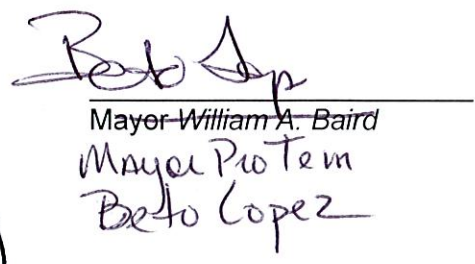 Beto Lopez
Mayor William A. Baird
Mayor Pro Tem
Beto Lopez